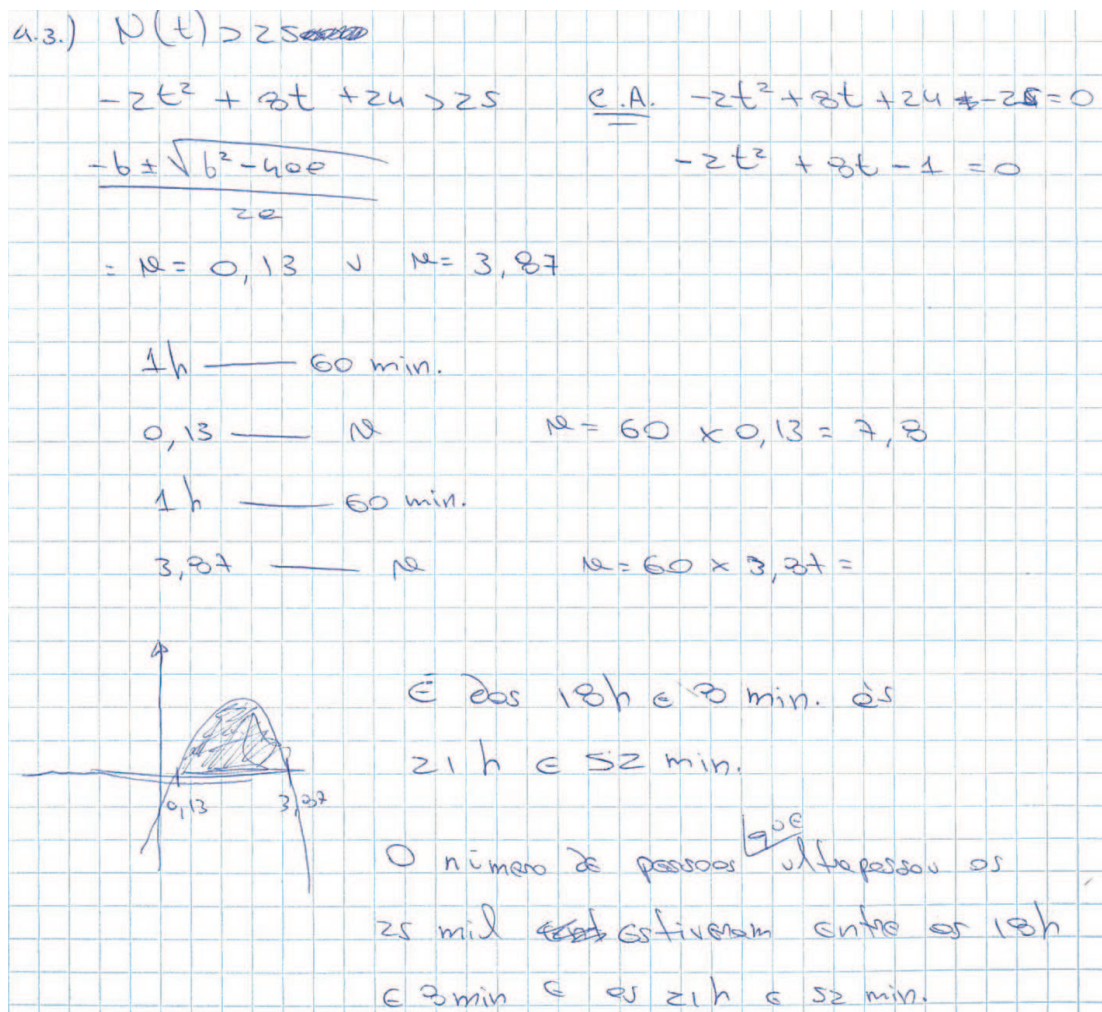 4.3.) N(t) > 25
-2t² + 8t + 24 > 25 C.A. -2t² + 8t + 24 - 25 = 0
-b ± √b² - 4ac -2t² + 8t - 1 = 0
2a
= x = 0,13 v x = 3,87
1h —— 60 min.
0,13 —— x x = 60 × 0,13 = 7,8
1h —— 60 min.
3,87 —— x x = 60 × 3,87 =
É das 18h e 8 min. às
21h e 52 min.
0,13 3,87
O número de pessoas que ultrapassou os
25 mil estiveram entre as 18h
e 8min e as 21h e 52 min.